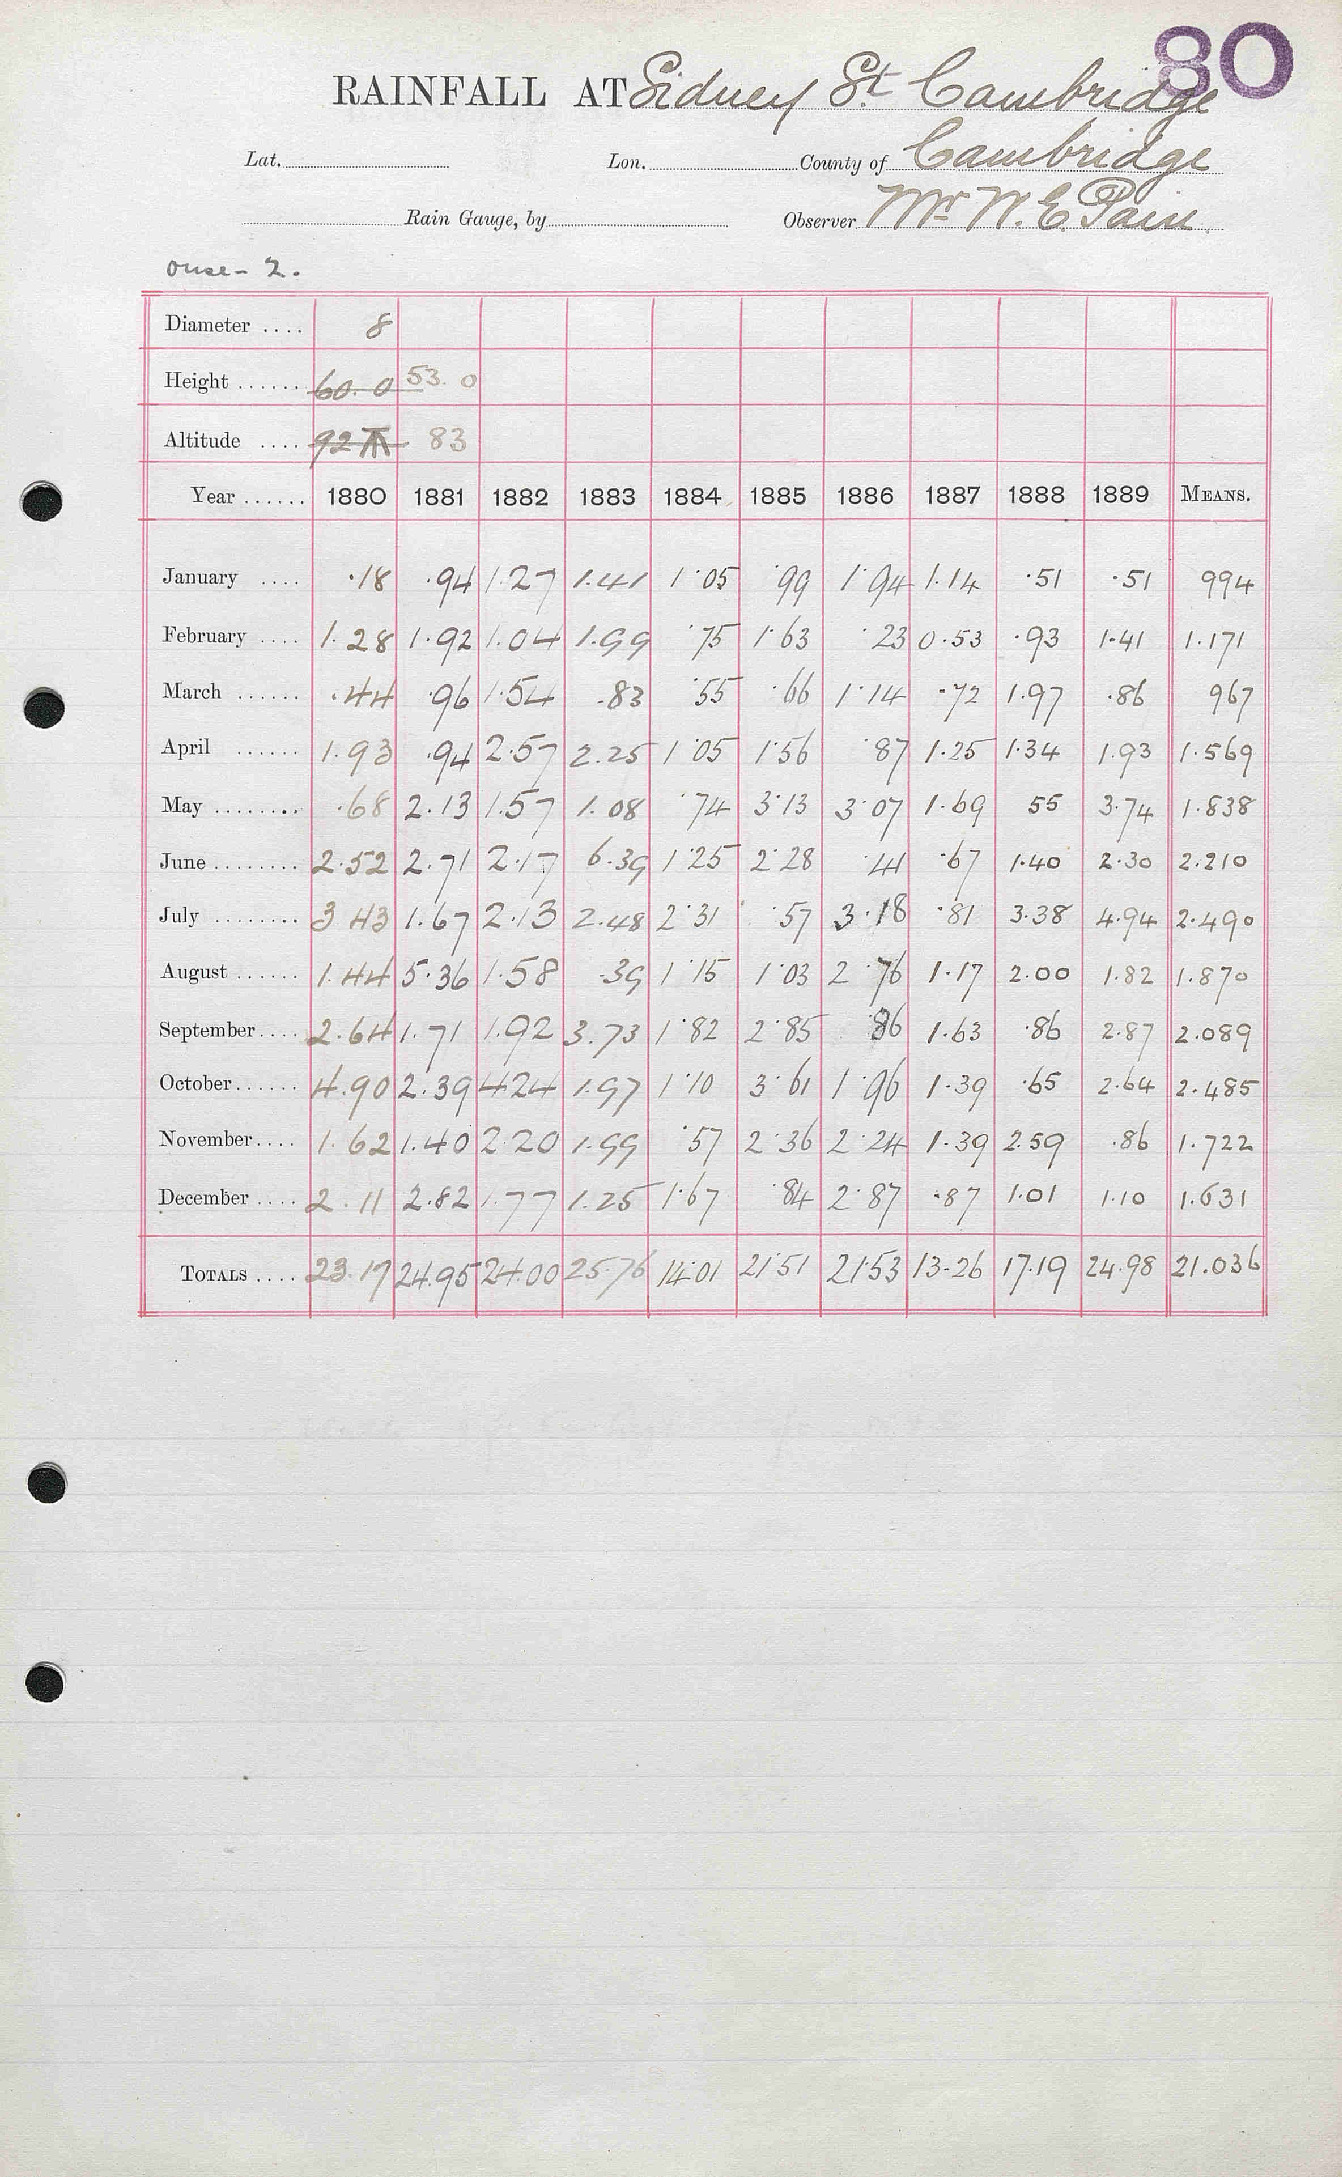 80
RAINFALL AT Sidney St. Cambridge
Lat. Lon. County of Cambridge
Rain Gauge, by Observer Mr W. E. Pain
Ouse - 2.
Diameter .... 8
Height ...... 60. 0 53. 0
Altitude .... 92 83
Year ...... 1880 1881 1882 1883 1884 1885 1886 1887 1888 1889 MEANS.
January .... .18 .94 1.27 1.41 1.05 .99 1.94 1.14 .51 .51 994
February .... 1.28 1.92 1.04 1.99 .75 1.63 .23 0.53 .93 1.41 1.171
March ...... .44 .96 1.54 .83 .55 .66 1.14 .72 1.97 .86 967
April ...... 1.93 .94 2.57 2.25 1.05 1.56 .87 1.25 1.34 1.93 1.569
May ........ .68 2.13 1.57 1.08 .74 3.13 3.07 1.69 55 3.74 1.838
June ........ 2.52 2.71 2.17 6.39 1.25 2.28 .41 .67 1.40 2.30 2.210
July ........ 3 43 1.67 2.13 2.48 2.31 .57 3.18 .81 3.38 4.94 2.490
August ...... 1.44 5.36 1.58 .39 1.15 1.03 2.76 1.17 2.00 1.82 1.870
September .... 2.64 1.71 1.92 3.73 1.82 2.85 .86 1.63 .86 2.87 2.089
October ...... 4.90 2.39 4.24 1.97 1.10 3.61 1.96 1.39 .65 2.64 2.485
November .... 1.62 1.40 2.20 1.99 .57 2.36 2.24 1.39 2.59 .86 1.722
December .... 2.11 2.82 1.77 1.25 1.67 .84 2.87 .87 1.01 1.10 1.631
TOTALS .... 23.17 24.95 24.00 25.76 14.01 21.51 21.53 13.26 17.19 24.98 21.036